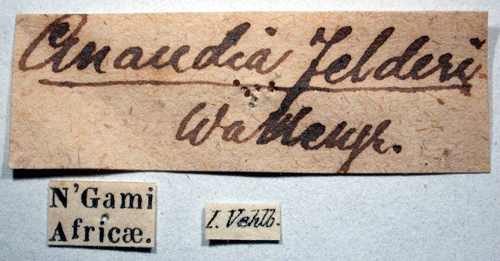 Anaudia Felderi
Wallengr.
N'Gami
Africæ.
I. Vahlb.